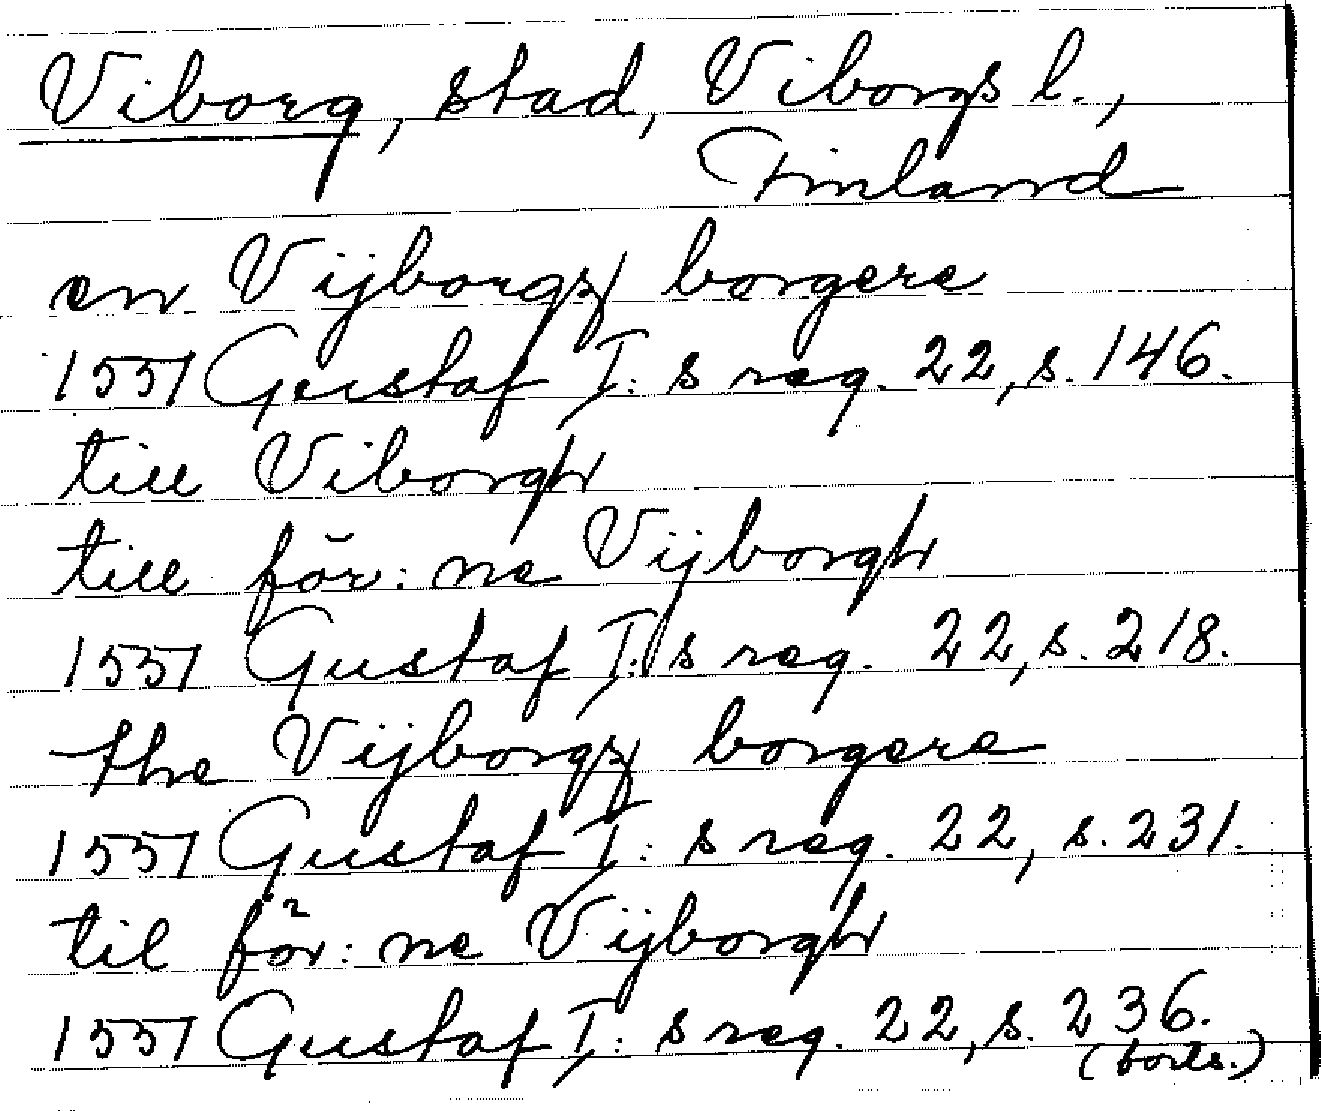 Viborg, stad, Viborgs l.,
Finland
en Vijborgz borgere
1551 Gustaf I: s reg. 22, s. 146.
till Viborgh
till för: ne Vijborgh
1551 Gustaf I: s reg. 22, s. 218.
the Vijborgz borgere
1551 Gustaf I: s reg. 22, s. 231.
til för: ne Vijborgh
1551 Gustaf I: s reg. 22, s. 236.
(forts.)